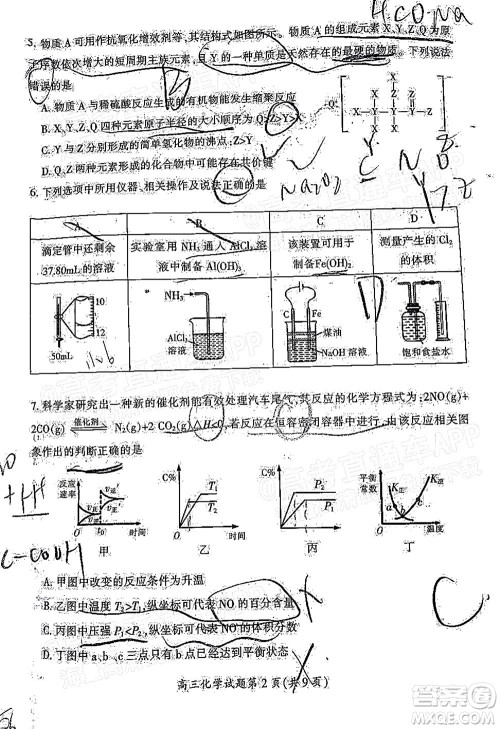 HCO₃Na
5. 物质A可用作抗氧化增效剂等，其结构式如图所示。物质A的组成元素X、Y、Z、Q为原
子序数依次增大的短周期主族元素，且Y的一种单质是天然存在的最硬的物质。下列说法
错误的是
A. 物质A与稀硫酸反应生成的有机物能发生缩聚反应
B. X、Y、Z、Q四种元素原子半径的大小顺序为Q>Z>Y>X
C. Y与Z分别形成的简单氢化物的沸点:Z>Y
D. Q、Z两种元素形成的化合物中可能存在共价键
Na₂O₂
C N O
6. 下列选项中所用仪器、相关操作及说法正确的是
A B C D
滴定管中还剩余 实验室用NH₃通入AlCl₃溶 该装置可用于 测量产生的Cl₂
37.80mL的溶液 液中制备Al(OH)₃ 制备Fe(OH)₂ 的体积
50mL 10 12
NH₃ AlCl₃ 溶液
C Fe 煤油 NaOH溶液
饱和食盐水
7. 科学家研究出一种新的催化剂能有效处理汽车尾气，其反应的化学方程式为:2NO(g)+
2CO(g) ⇌(催化剂) N₂(g)+2CO₂(g) △H<0，若反应在恒容密闭容器中进行，由该反应相关图
象作出的判断正确的是
反应速率 v正 v逆 t₀ 时间 甲
C% T₁ T₂ 时间 乙
C% P₂ P₁ 时间 丙
平衡常数 K正 K逆 a b c 温度 丁
C-COOH
A. 甲图中改变的反应条件为升温
B. 乙图中温度T₂>T₁，纵坐标可代表NO的百分含量
C. 丙图中压强P₁<P₂，纵坐标可代表NO的体积分数
D. 丁图中a、b、c三点只有b点已经达到平衡状态
高三化学试题第2页(共9页)
答案圈